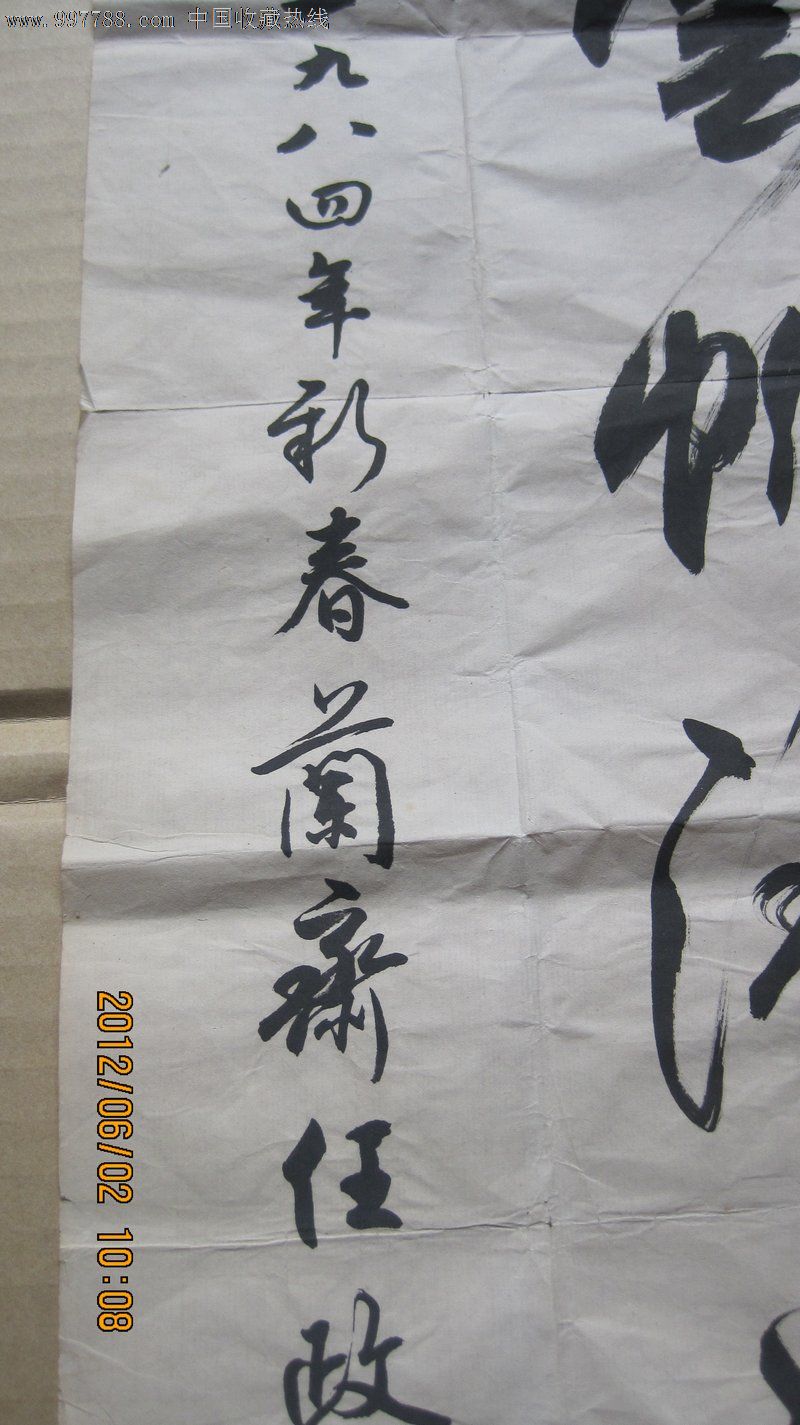 www.997788.com 中国收藏热线
帆
九八四年新春蘭齋任政
2012/06/02 10:08